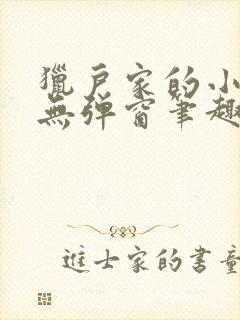 獵戶家的小
無彈窗筆趣
進士家的書童